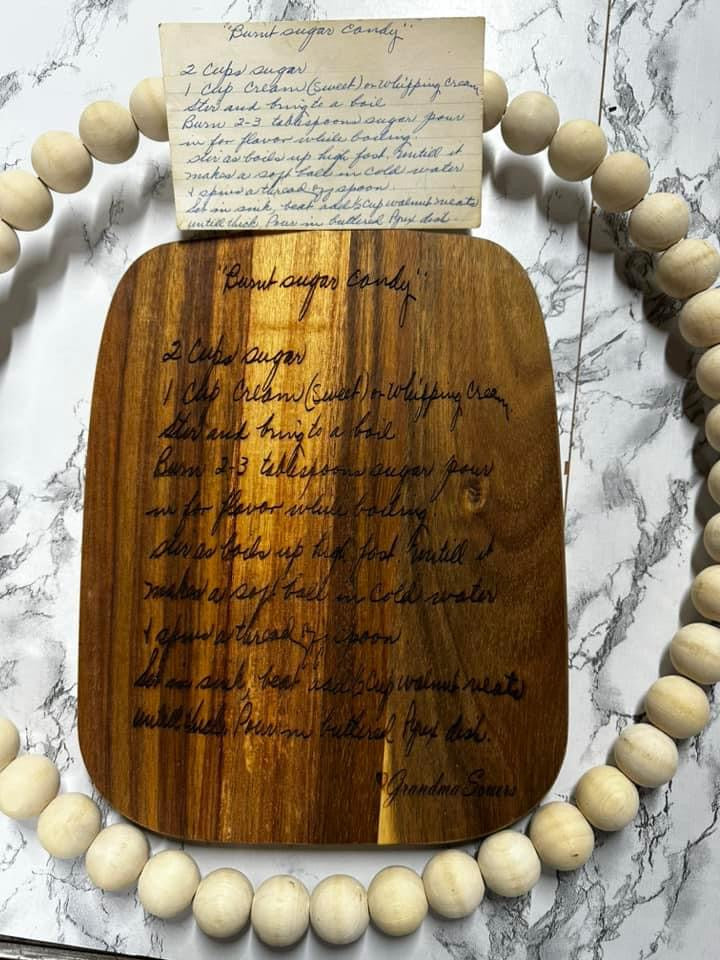 "Burnt sugar candy"
2 Cups sugar
1 Cup Cream (Sweet) or Whipping Cream
Stir and bring to a boil
Burn 2-3 tablespoons sugar pour
in for flavor while boiling.
stir as boils up high fast. Untill it
makes a soft ball in Cold water
& spins a thread off spoon.
Set in sink, beat add ½ Cup walnut meats
untill thick. Pour in buttered Pyrex dish.
"Burnt sugar candy"
2 Cups sugar
1 Cup Cream (Sweet) or Whipping Cream
Stir and bring to a boil
Burn 2-3 tablespoons sugar pour
in for flavor while boiling.
stir as boils up high fast. Untill it
makes a soft ball in Cold water
& spins a thread off spoon.
Set in sink, beat add ½ Cup walnut meats
untill thick. Pour in buttered Pyrex dish.
♡Grandma Somers